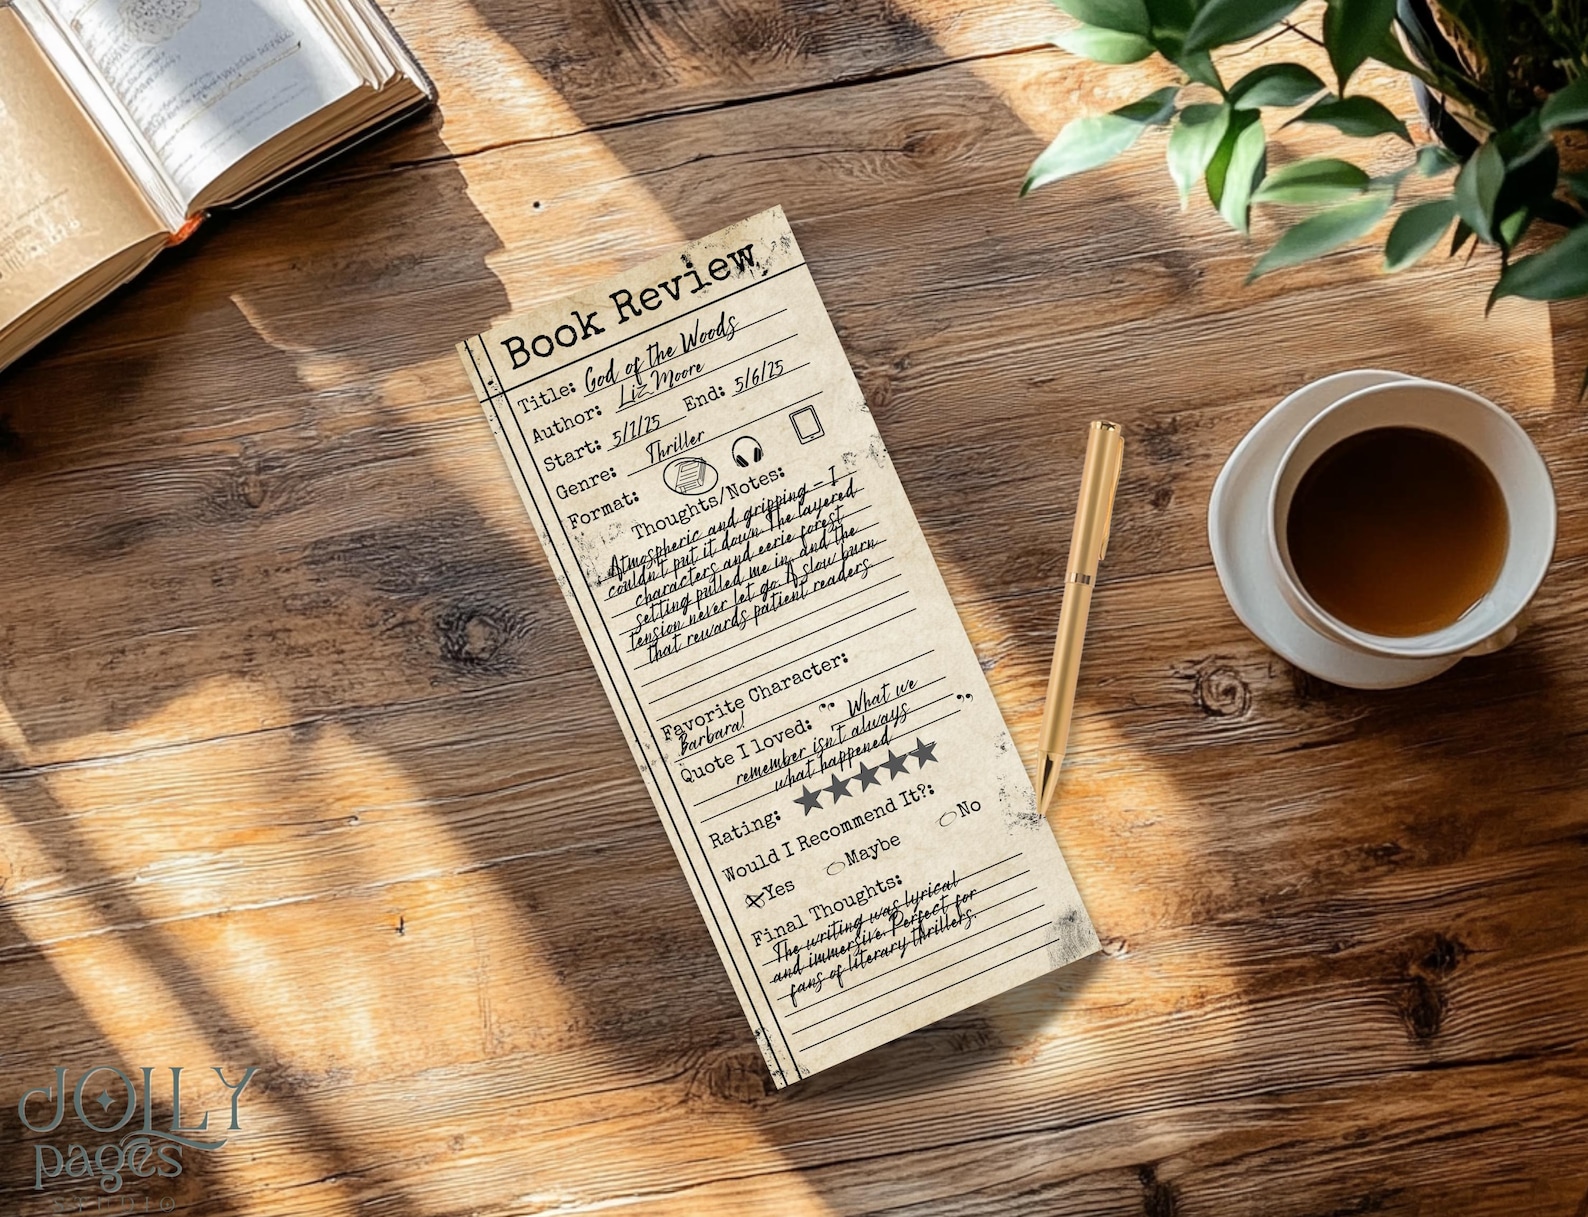 Book Review
Title: God of the Woods
Author: Liz Moore
Start: 5/1/25 End: 5/6/25
Genre: Thriller
Format:
Thoughts/Notes:
Atmospheric and gripping - I
couldn't put it down. The layered
characters and eerie forest
setting pulled me in, and the
tension never let go. A slow burn
that rewards patient readers.
Favorite Character:
Barbara!
Quote I loved: “ What we
remember isn't always ”
what happened
Rating: ★★★★★
Would I Recommend It?:
Yes Maybe No
Final Thoughts:
The writing was lyrical
and immersive. Perfect for
fans of literary thrillers.
JOLLY
pages
STUDIO